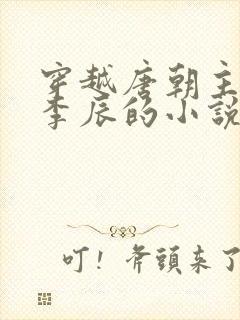 穿越唐朝主
李辰的小說
叮！斧頭來了